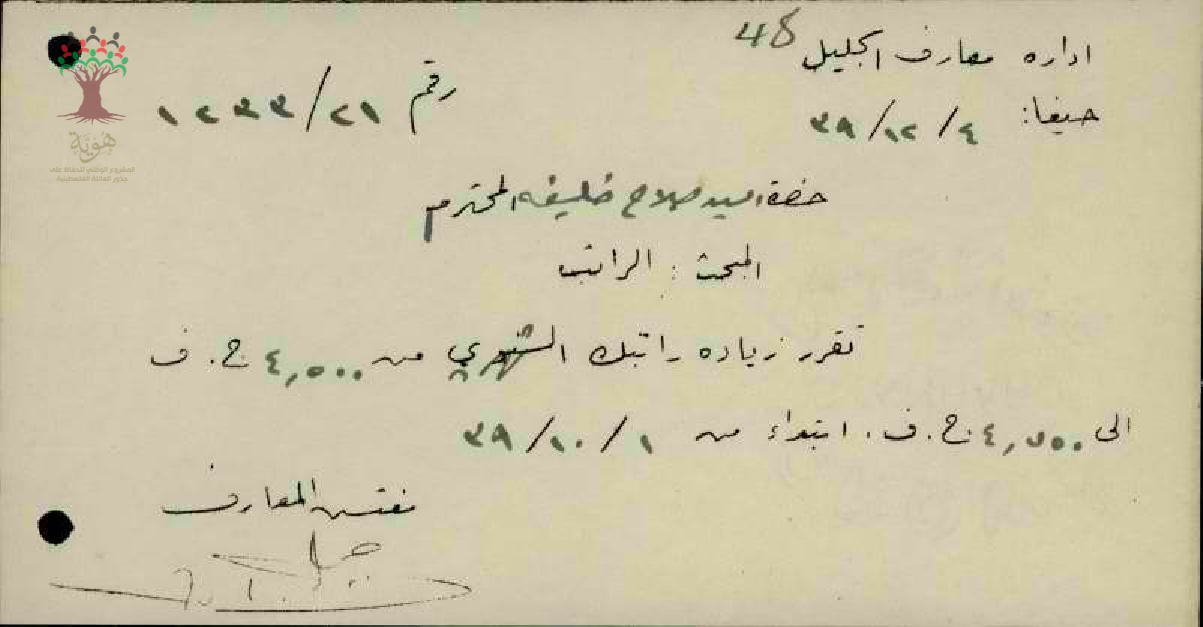 48
اداره معارف الجليل
حيفا: ٤ / ١٢ / ٣٩
رقم ٢١ / ١٢٣٣
حضرة السيد صلاح خليفه المحترم
المبحث : الراتب
تقرر زياده راتبك الشهري من ٤,٥٠٠ ج. ف
الى ٤,٧٥٠ ج. ف. ابتداء من ١ / ١٠ / ٣٩
مفتش المعارف
هُوِيَّة
المشروع الوطني للحفاظ على
جذور العائلة الفلسطينية